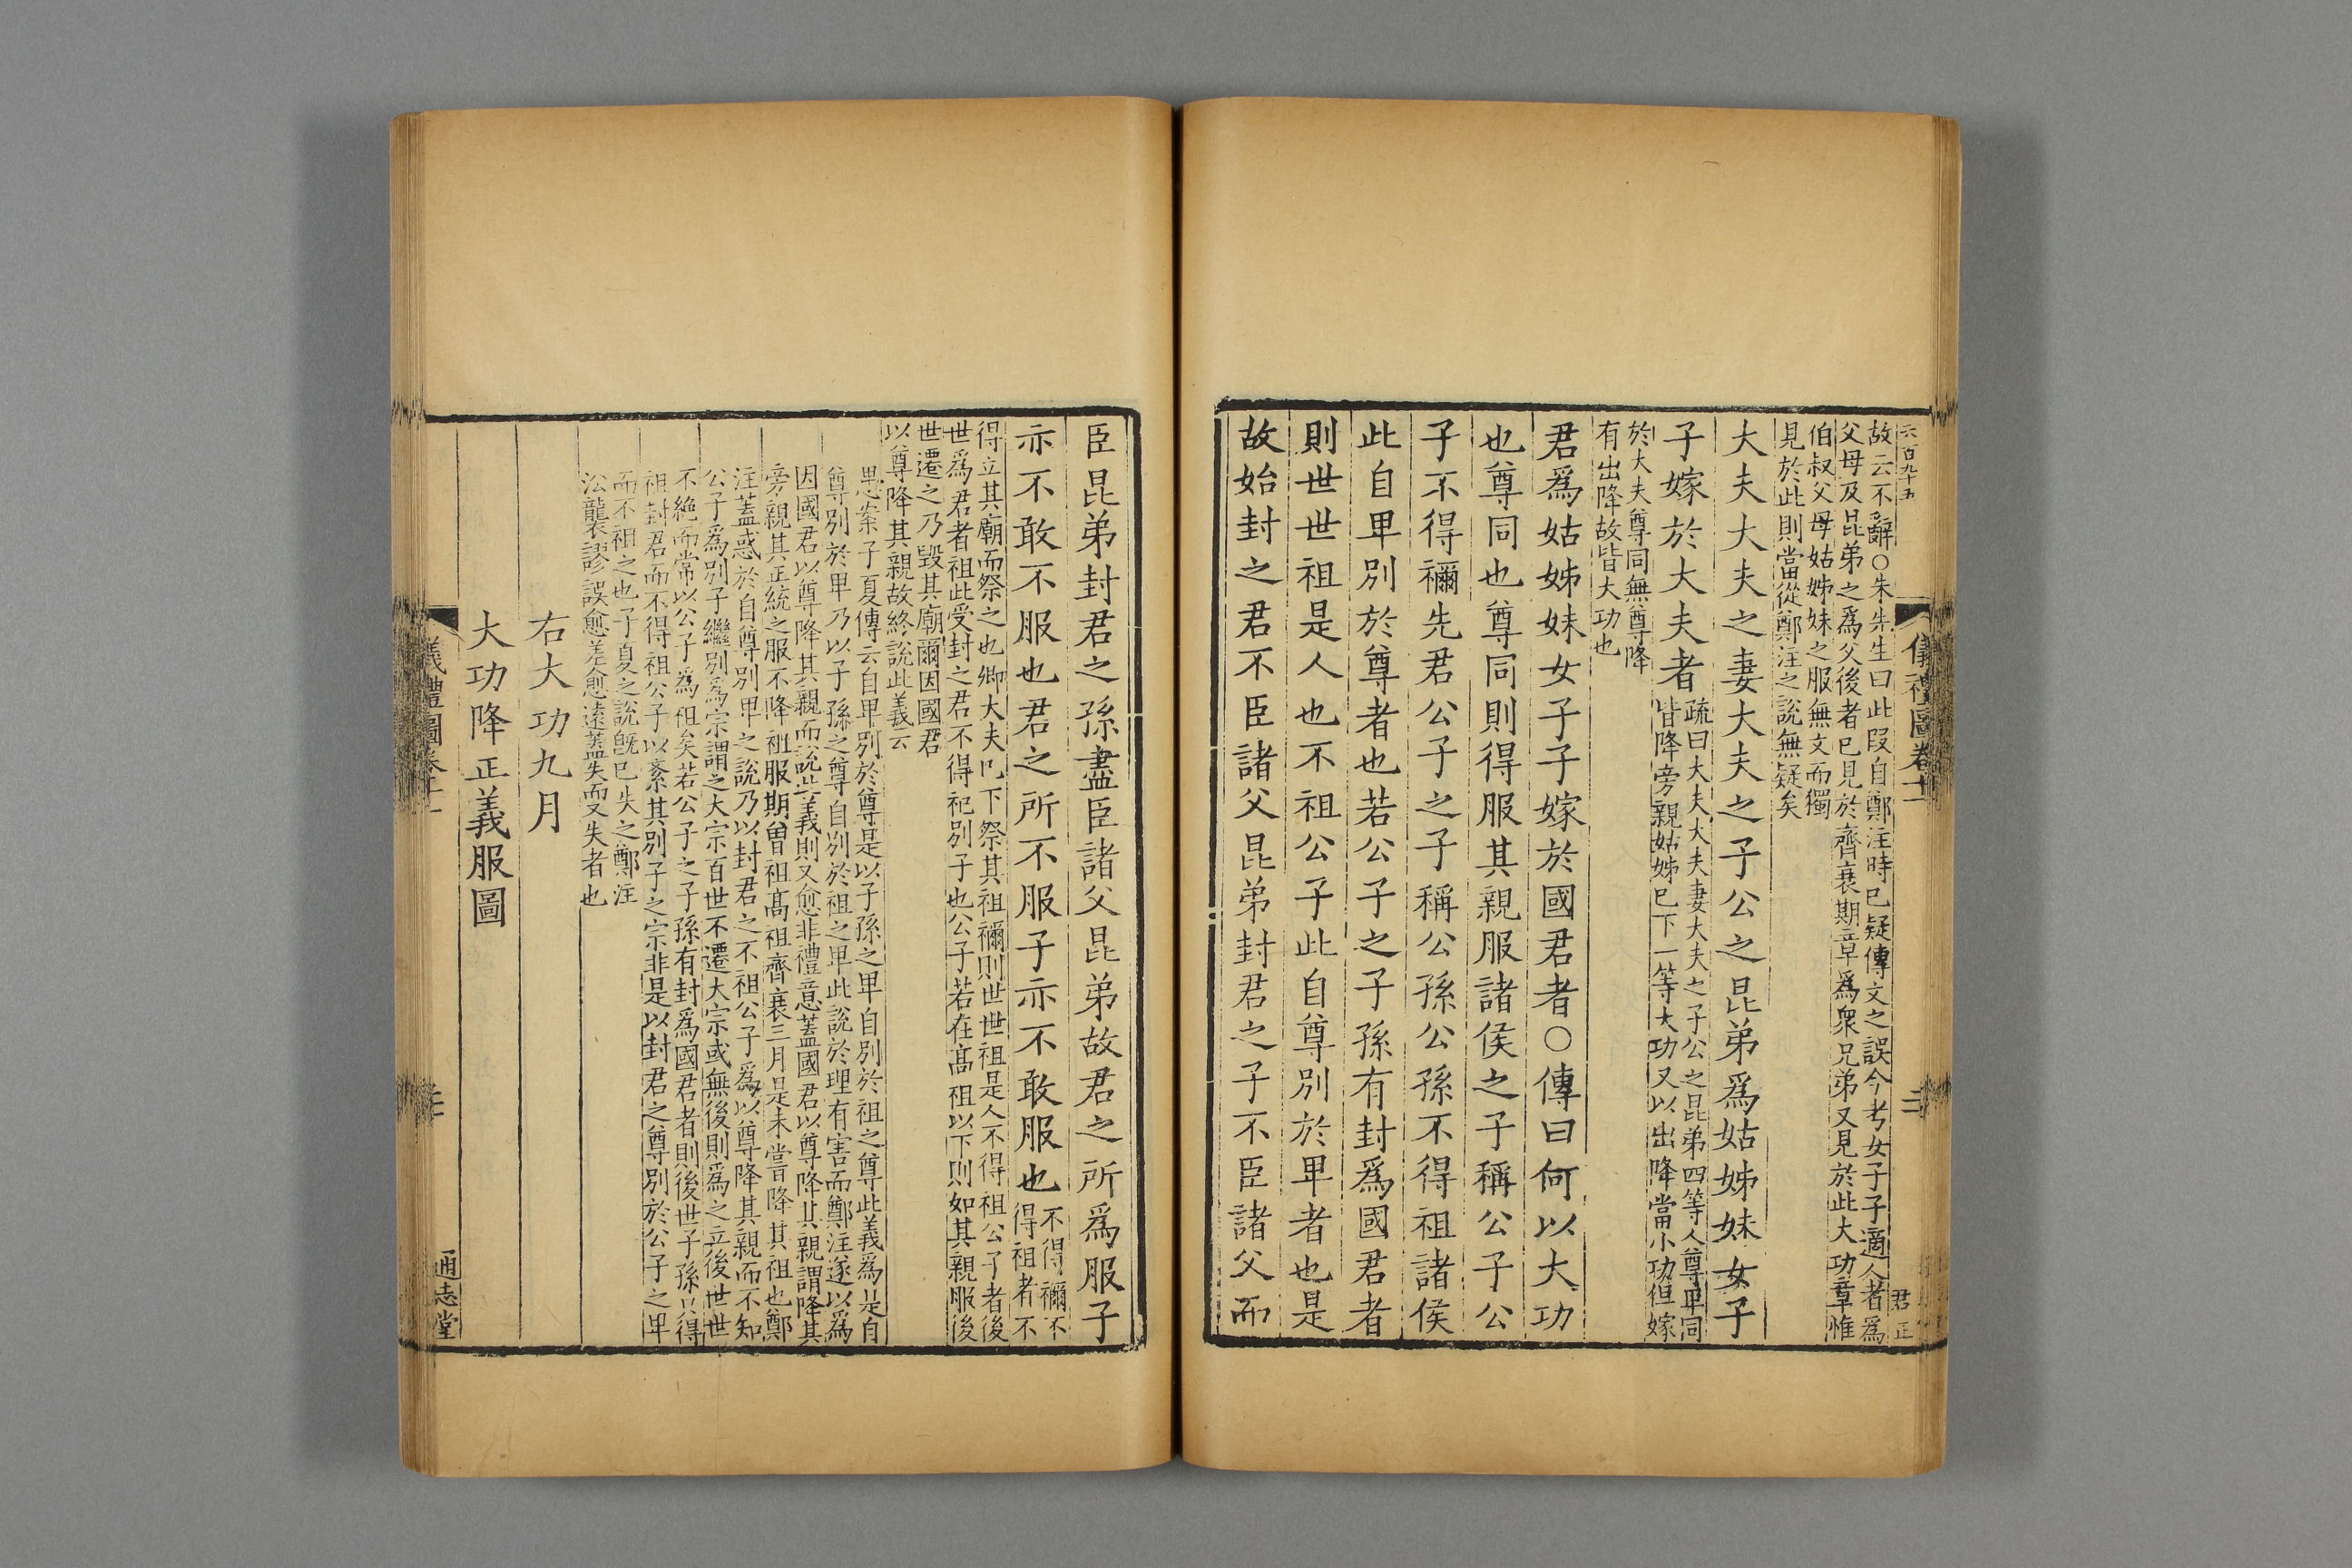 六百九十五
儀禮圖卷十一
二十
君正
故云不辭〇朱先生曰此段自鄭注時已疑傳文之誤今考女子子適人者爲
父母及昆弟之爲父後者已見於齊衰期章爲衆兄弟又見於此大功章惟
伯叔父母姑姊妹之服無文而獨
見於此則當從鄭注之說無疑矣
大夫大夫之妻大夫之子公之昆弟爲姑姊妹女子
子嫁於大夫者
疏曰大夫大夫妻大夫之子公之昆弟四等人尊卑同
皆降旁親姑姊已下一等大功又以出降當小功但嫁
於大夫尊同無尊降
有出降故皆大功也
君爲姑姊妹女子子嫁於國君者〇傳曰何以大功
也尊同也尊同則得服其親服諸侯之子稱公子公
子不得禰先君公子之子稱公孫公孫不得祖諸侯
此自卑別於尊者也若公子之子孫有封爲國君者
則世世祖是人也不祖公子此自尊別於卑者也是
故始封之君不臣諸父昆弟封君之子不臣諸父而
臣昆弟封君之孫盡臣諸父昆弟故君之所爲服子
亦不敢不服也君之所不服子亦不敢服也
不得禰不
得祖者不
得立其廟而祭之也卿大夫已下祭其祖禰則世世祖是人不得祖公子者後
世爲君者祖此受封之君不得祀別子也公子若在高祖以下則如其親服後
世遷之乃毀其廟爾因國君
以尊降其親故終說此義云
愚案子夏傳云自卑別於尊是以子孫之卑自別於祖之尊此義爲是自
尊別於卑乃以子孫之尊自別於祖之卑此說於理有害而鄭注遂以爲
因國君以尊降其親而說此義則又愈非禮意蓋國君以尊降其親謂降其
旁親其正統之服不降祖服期曾祖高祖齊衰三月是未嘗降其祖也鄭
注蓋惑於自尊別卑之說乃以封君之不祖公子爲以尊降其親而不知
公子爲別子繼別爲宗謂之大宗百世不遷大宗或無後則爲之立後世世
不絶而常以公子爲祖矣若公子之子孫有封爲國君者則後世子孫以得
祖封君而不得祖公子以紊其別子之宗非是以封君之尊別於公子之卑
而不祖之也子夏之說既已失之鄭注
㳂襲謬誤愈差愈遠蓋失而又失者也
右大功九月
大功降正義服圖
儀禮圖卷十一
二十
通志堂